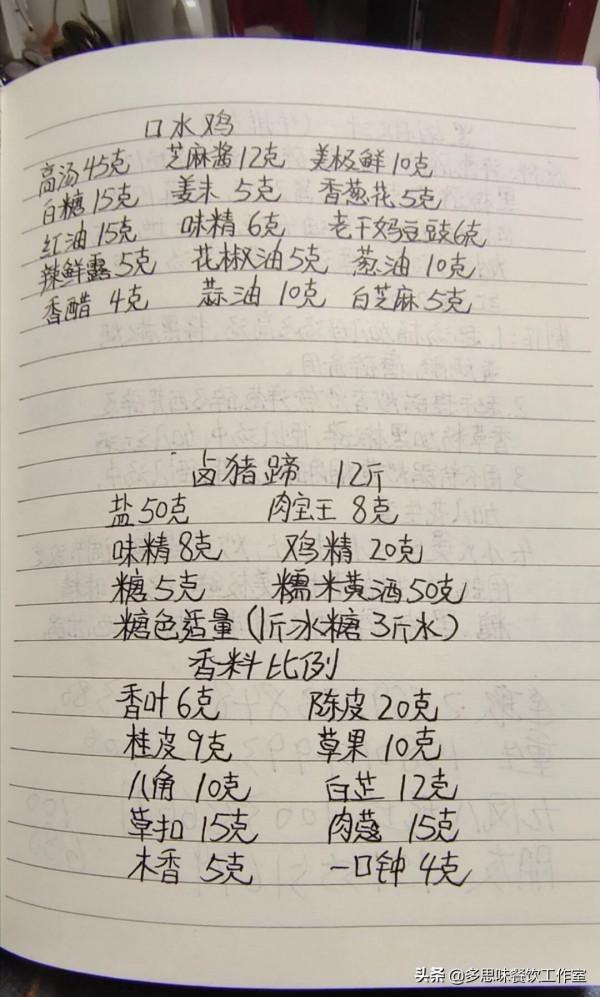 口水鸡
高汤45克 芝麻酱12克 美极鲜10克
白糖15克 姜末5克 香葱花5克
红油15克 味精6克 老干妈豆豉6克
辣鲜露5克 花椒油5克 葱油10克
香醋4克 蒜油10克 白芝麻5克
卤猪蹄 12斤
盐50克 肉宝王8克
味精8克 鸡精20克
糖5克 糯米黄酒50克
糖色适量(1斤冰糖3斤水)
香料比例
香叶6克 陈皮20克
桂皮9克 草果10克
八角10克 白芷12克
草扣15克 肉蔻15克
木香5克 一口钟4克
头条 @多思味餐饮工作室